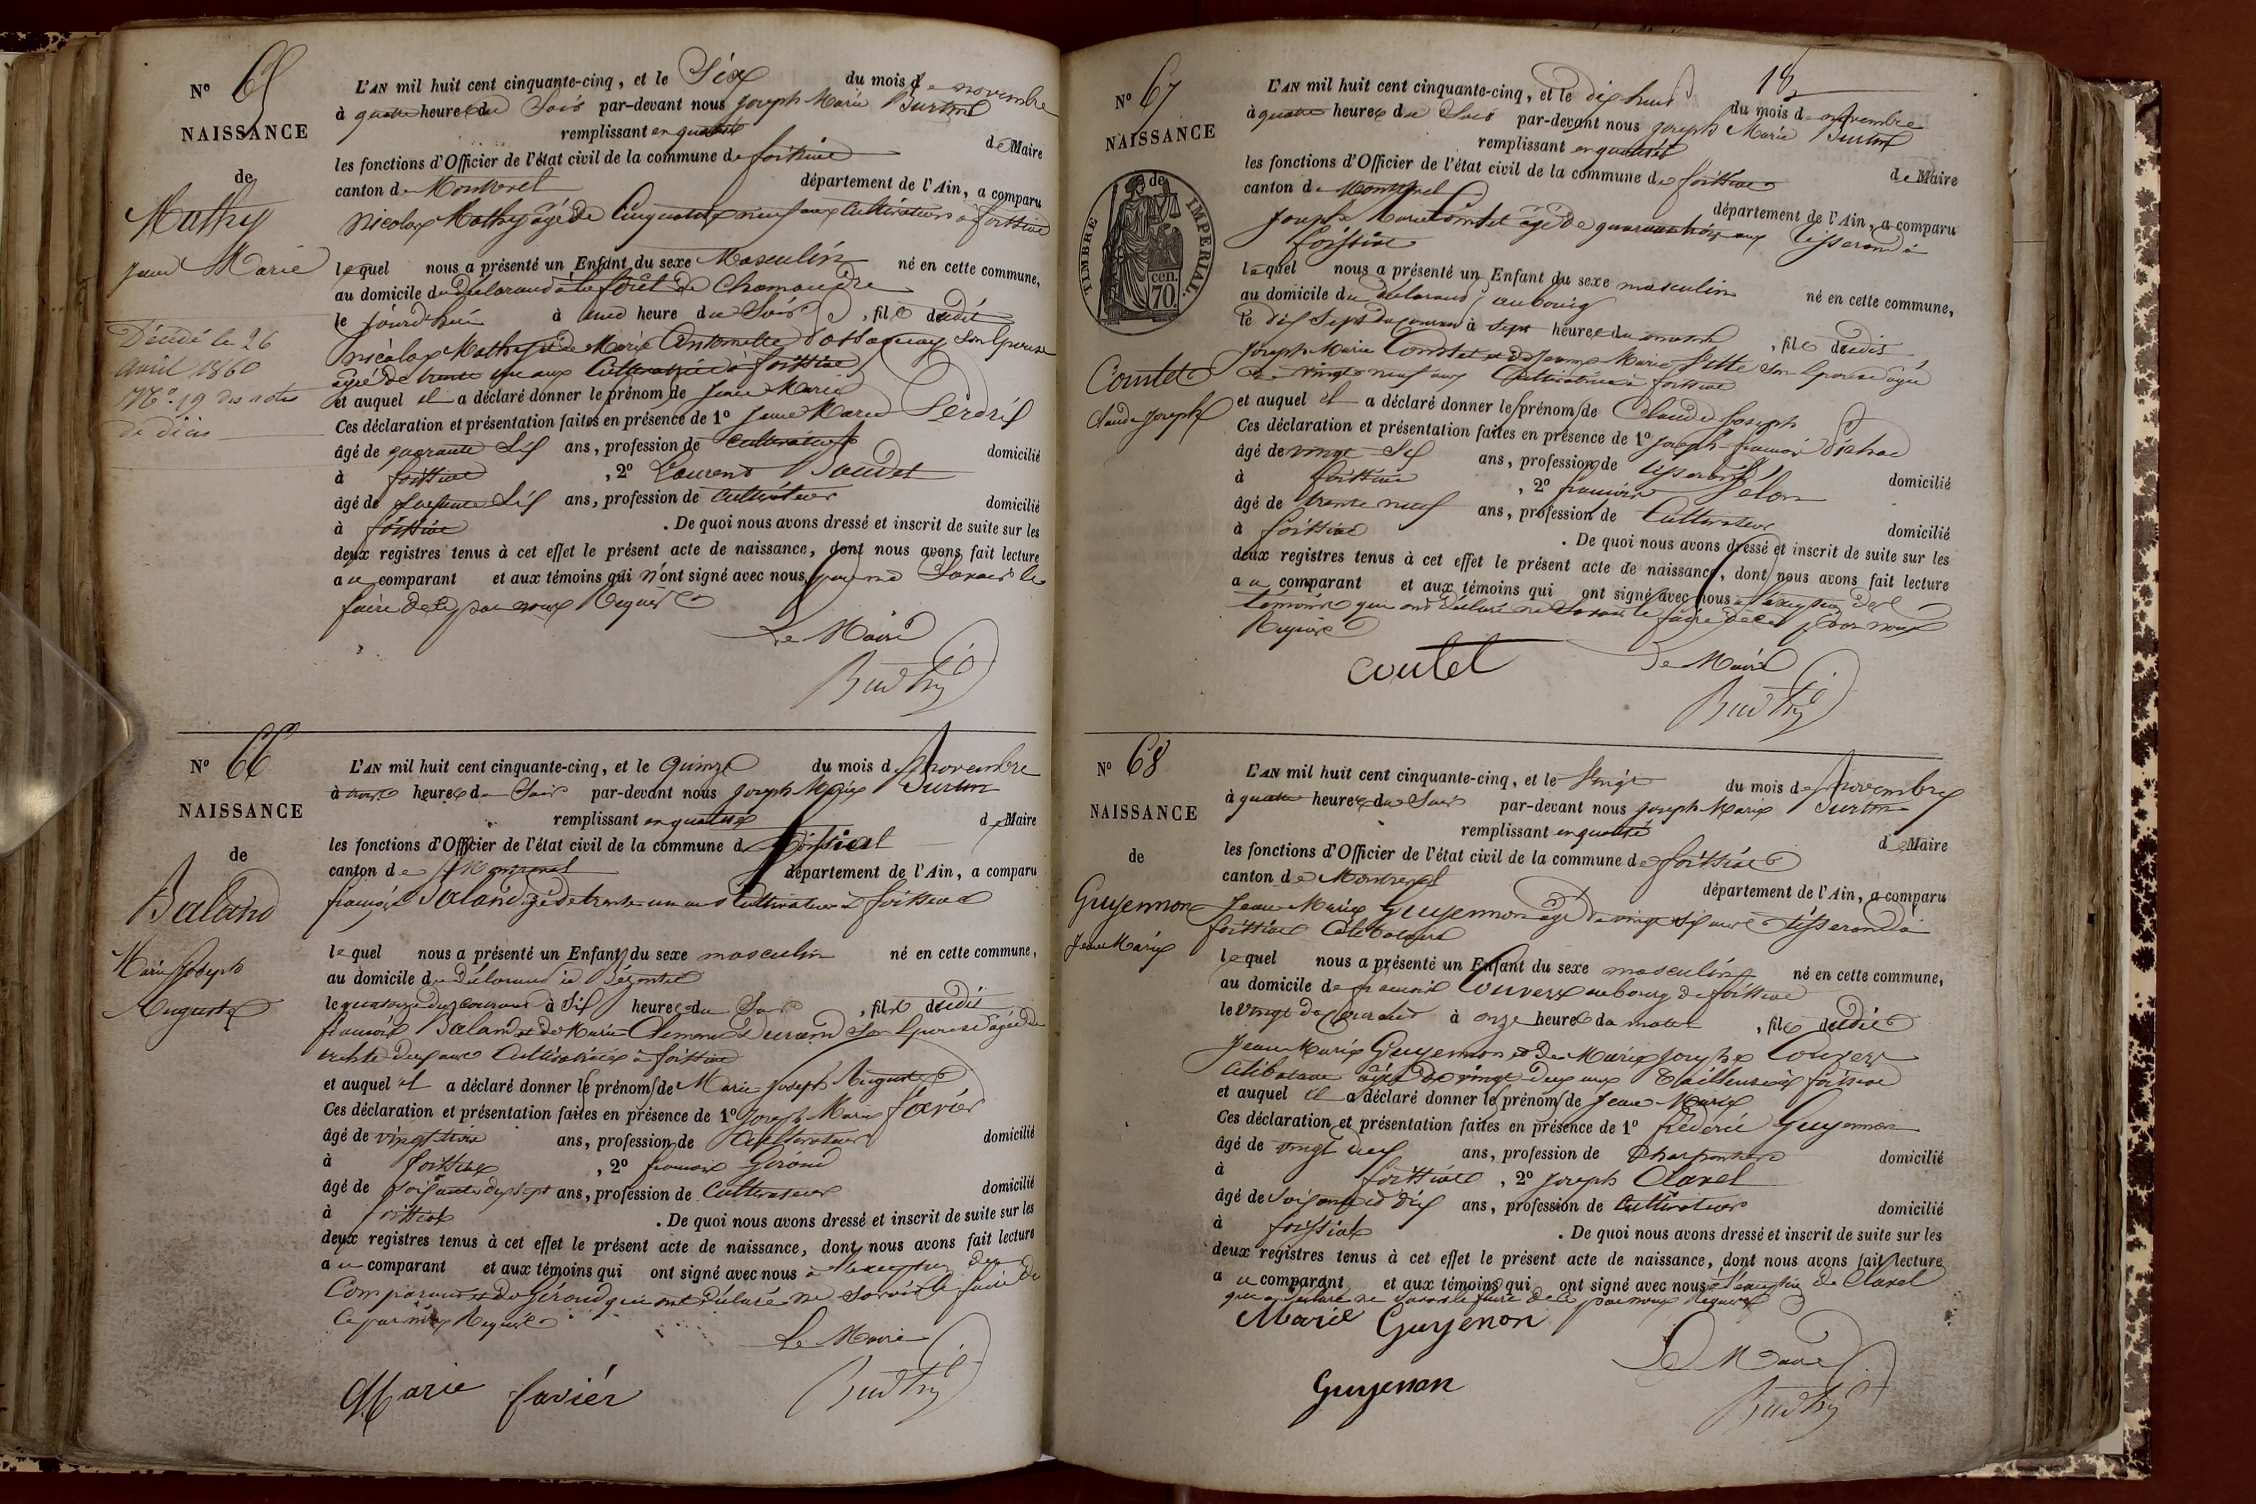 N° 65
NAISSANCE
de
Mathy
Jean Marie
Décédé le 26
avril 1860
N° 19 des actes
de décès
L'AN mil huit cent cinquante-cinq, et le Six du mois de novembre
à quatre heures du Soir par-devant nous Joseph Marie
remplissant en qualité de Maire
les fonctions d'Officier de l'état civil de la commune de foissiat
canton de Montrevel département de l'Ain, a comparu
Nicolas Mathy âgé de Cinquante neuf ans Cultivateur à foissiat
lequel nous a présenté un Enfant du sexe Masculin né en cette commune,
au domicile du déclarant à la foret de Chamandre
le jourd'hui à une heure du Soir, fils dudit
nicolas Mathy et de Marie Antoinette son épouse
âgée de trente une ans Cultivatrice à foissiat
et auquel il a déclaré donner le prénom de Jean Marie
Ces déclaration et présentation faites en présence de 1° Jean Marie
âgé de quarante Six ans, profession de Cultivateur domicilié
à foissiat, 2° Laurent
âgé de Soixante Six ans, profession de Cultivateur domicilié
à foissiat. De quoi nous avons dressé et inscrit de suite sur les
deux registres tenus à cet effet le présent acte de naissance, dont nous avons fait lecture
au comparant et aux témoins qui n'ont signé avec nous pour ne Savoir le
faire de ce par nous Requis
Le Maire
N° 66
NAISSANCE
de
Baland
Marie Joseph
Auguste
L'AN mil huit cent cinquante-cinq, et le quinze du mois de novembre
à trois heures du Soir par-devant nous Joseph Marie
remplissant en qualité de Maire
les fonctions d'Officier de l'état civil de la commune de foissiat
canton de Montrevel département de l'Ain, a comparu
françois Baland âgé de trente un ans Cultivateur à foissiat
lequel nous a présenté un Enfant du sexe masculin né en cette commune,
au domicile du Déclarant à
le quatorze du Courant à Six heures du Soir, fils dudit
françois Baland et de Marie Clémence Durand Son épouse âgée de
trente deux ans Cultivatrice à foissiat
et auquel il a déclaré donner le prénom de Marie Joseph Auguste
Ces déclaration et présentation faites en présence de 1° Joseph Marie favier
âgé de vingt trois ans, profession de Cultivateur domicilié
à foissiat, 2° françois Giroud
âgé de Soixante dix sept ans, profession de Cultivateur domicilié
à foissiat. De quoi nous avons dressé et inscrit de suite sur les
deux registres tenus à cet effet le présent acte de naissance, dont nous avons fait lecture
au comparant et aux témoins qui ont signé avec nous à l'exception du
Comparant et de Giroud qui ont déclaré ne savoir le faire de
Ce par nous Requis
Le Maire
Marie favier
18
N° 67
NAISSANCE
de
TIMBRE IMPERIAL
70 cen.
Comtet
Claude Joseph
L'AN mil huit cent cinquante-cinq, et le dix huit du mois de novembre
à quatre heures du Soir par-devant nous Joseph Marie
remplissant en qualité de Maire
les fonctions d'Officier de l'état civil de la commune de foissiat
canton de Montrevel département de l'Ain, a comparu
Joseph Marie Comtet âgé de quarante trois ans Tisserand à
foissiat
lequel nous a présenté un Enfant du sexe masculin né en cette commune,
au domicile du Déclarant au bourg
le dix Sept du courant à sept heures du matin, fils dudit
Joseph Marie Comtet et de Jeanne Marie Son épouse âgée
de vingt neuf ans Cultivatrice à foissiat
et auquel il a déclaré donner le prénom de Claude Joseph
Ces déclaration et présentation faites en présence de 1° Joseph françois
âgé de vingt Six ans, profession de tisserand domicilié
à foissiat, 2° françois
âgé de trente neuf ans, profession de Cultivateur domicilié
à foissiat. De quoi nous avons dressé et inscrit de suite sur les
deux registres tenus à cet effet le présent acte de naissance, dont nous avons fait lecture
au comparant et aux témoins qui ont signé avec nous à l'exception des
témoins qui ont déclaré ne savoir le faire de ce par nous
Requis
Le Maire
N° 68
NAISSANCE
de
Guyennon
Jean Marie
L'AN mil huit cent cinquante-cinq, et le Vingt du mois de novembre
à quatre heures du Soir par-devant nous Joseph Marie
remplissant en qualité de Maire
les fonctions d'Officier de l'état civil de la commune de foissiat
canton de Montrevel département de l'Ain, a comparu
Jean Marie Guyennon âgé de vingt six ans tisserand à
foissiat Célibataire
lequel nous a présenté un Enfant du sexe masculin né en cette commune,
au domicile de françois Couvert au bourg de foissiat
le Vingt du Courant à onze heures du matin, fils dudit
Jean Marie Guyennon et de Marie Josephe Couvert
Célibataire âgée de vingt deux ans Tailleuse à foissiat
et auquel il a déclaré donner le prénom de Jean Marie
Ces déclaration et présentation faites en présence de 1° frédéric Guyennon
âgé de vingt deux ans, profession de Charpentier domicilié
à foissiat, 2° Joseph Clavel
âgé de Soixante et dix ans, profession de Cultivateur domicilié
à foissiat. De quoi nous avons dressé et inscrit de suite sur les
deux registres tenus à cet effet le présent acte de naissance, dont nous avons fait lecture
au comparant et aux témoins qui ont signé avec nous à l'exception de Clavel
qui a déclaré ne savoir le faire de ce par nous Requis
Marie Guyenon
Le Maire
Guyenon